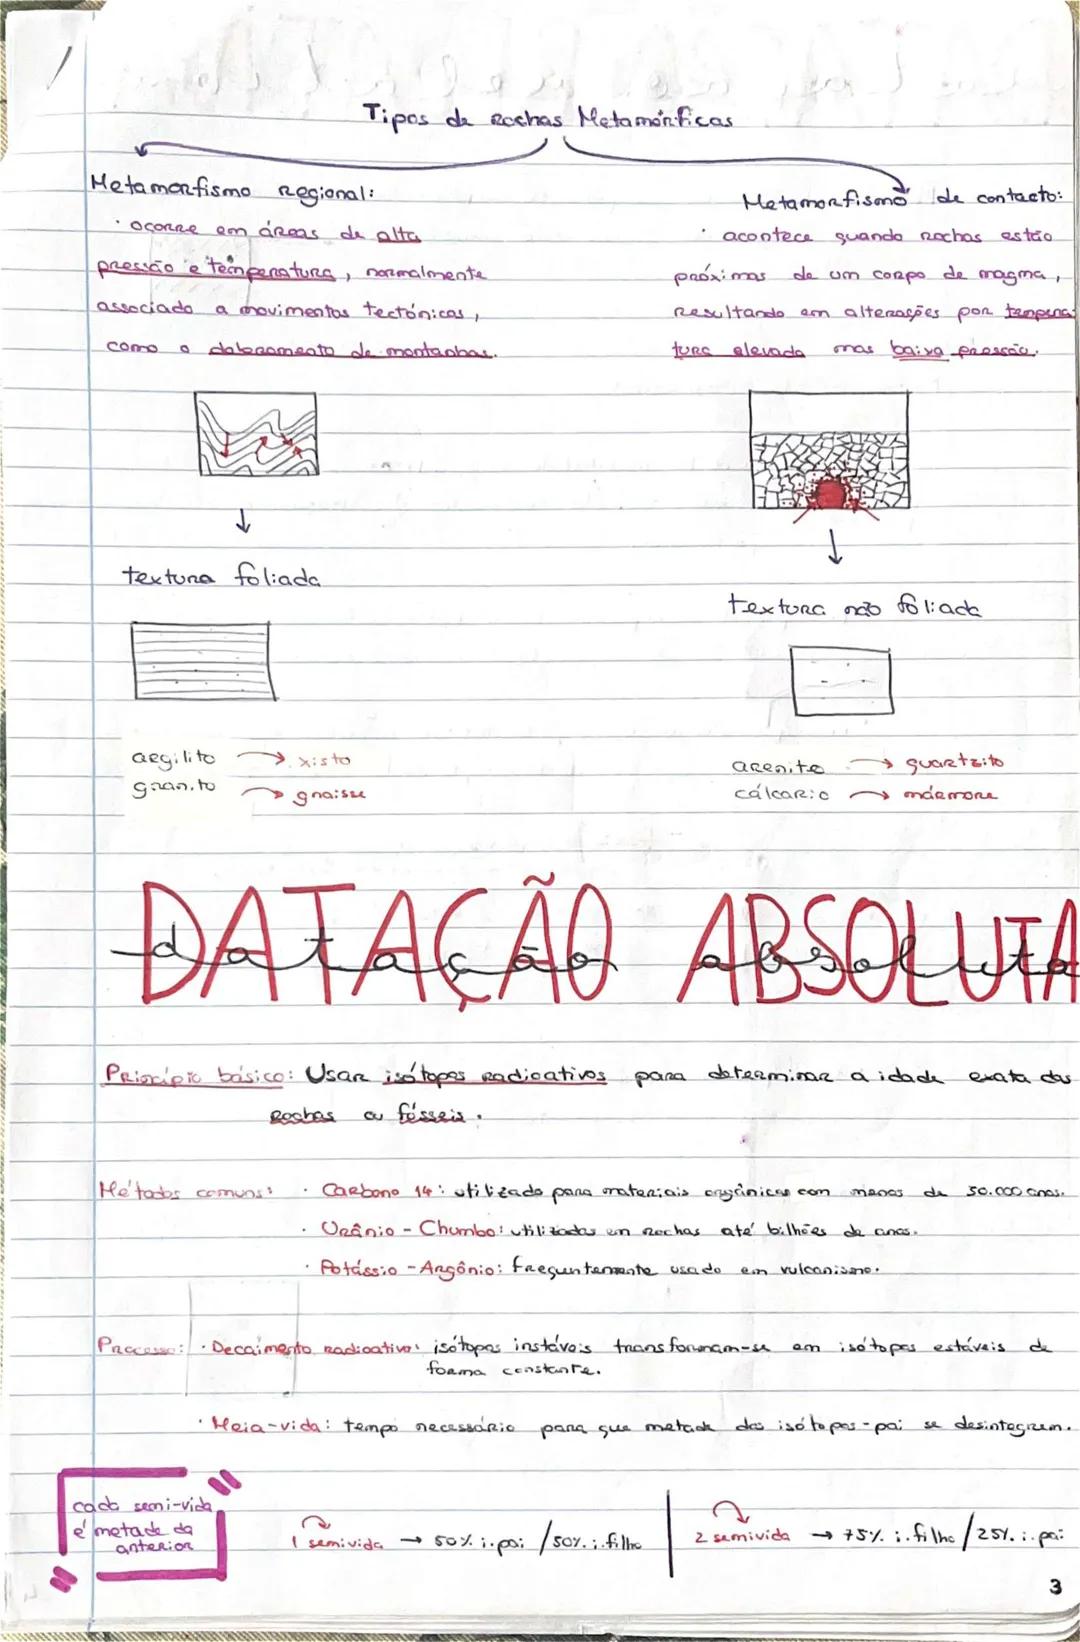 Tipos de Rochas Metamórficas
Metamorfismo Regional:
· ocorre em áreas de alta
pressão e temperatura, normalmente
associado a movimentos tectónicos,
como o dobramento de montanhas.
Metamorfismo de contacto:
· acontece quando rochas estão
próximas de um corpo de magma,
resultando em alterações por tempera
tura elevada mas baixa pressão.
textura foliada
textura não foliada
argilito → xisto
granito → gnaisse
arenito → quartzito
cálcario → mármore
DATAÇÃO ABSOLUTA
datação absoluta
Princípio básico: Usar isótopos radioativos para determinar a idade exata das
Rochas ou fósseis.
Métodos comuns: · Carbono 14: utilizado para materiais orgânicos com menos de 50.000 anos.
· Urânio - Chumbo: utilizados em rochas até bilhões de anos.
· Potássio - Argônio: frequentemente usado em vulcanismo.
Processo: · Decaimento radioativo: isótopos instáveis transformam-se em isótopos estáveis de
forma constante.
· Meia-vida: tempo necessário para que metade dos isótopos-pai se desintegrem.
cada semi-vida
é metade da
anterior
1 semivida → 50% i.pai / 50% i.filho
2 semivida → 75% i.filho / 25% i.pai
3